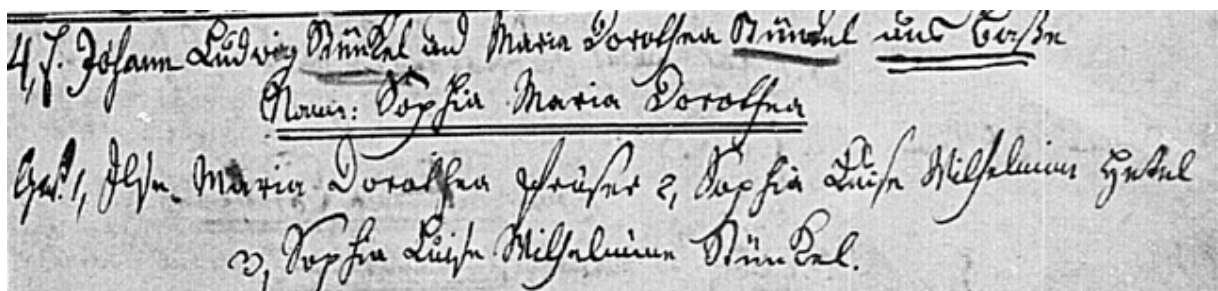 4, J. Johann Ludwig Stünkel und Maria Dorothea Stünkel aus Basse
Name: Sophia Maria Dorothea
Gev. 1, Ilse Maria Dorothea Prüser 2, Sophia Luise Wilhelmine Hekel
3, Sophia Luise Wilhelmine Stünkel.